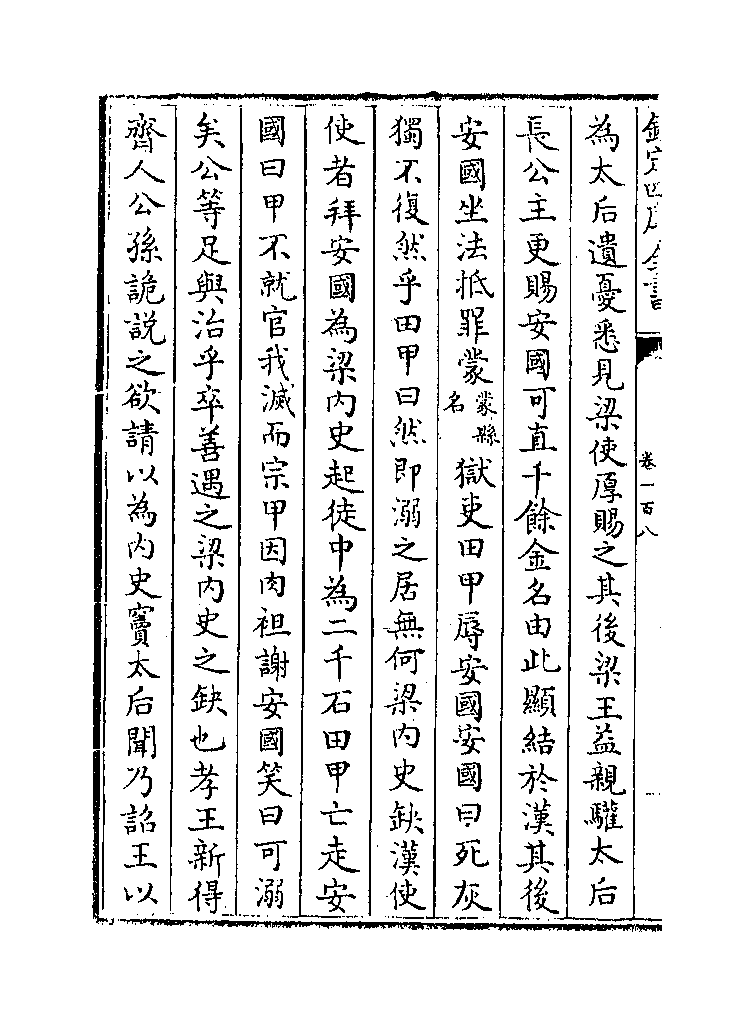 欽定四庫全書
卷一百八
為太后遺憂悉見梁使厚賜之其後梁王益親驩太后
長公主更賜安國可直千餘金名由此顯結於漢其後
安國坐法抵罪蒙蒙縣名獄吏田甲辱安國安國曰死灰
獨不復然乎田甲曰然即溺之居無何梁内史缺漢使
使者拜安國為梁内史起徒中為二千石田甲亡走安
國曰甲不就官我滅而宗甲因肉袒謝安國笑曰可溺
矣公等足與治乎卒善遇之梁内史之缺也孝王新得
齊人公孫詭説之欲請以為内史竇太后聞乃詔王以